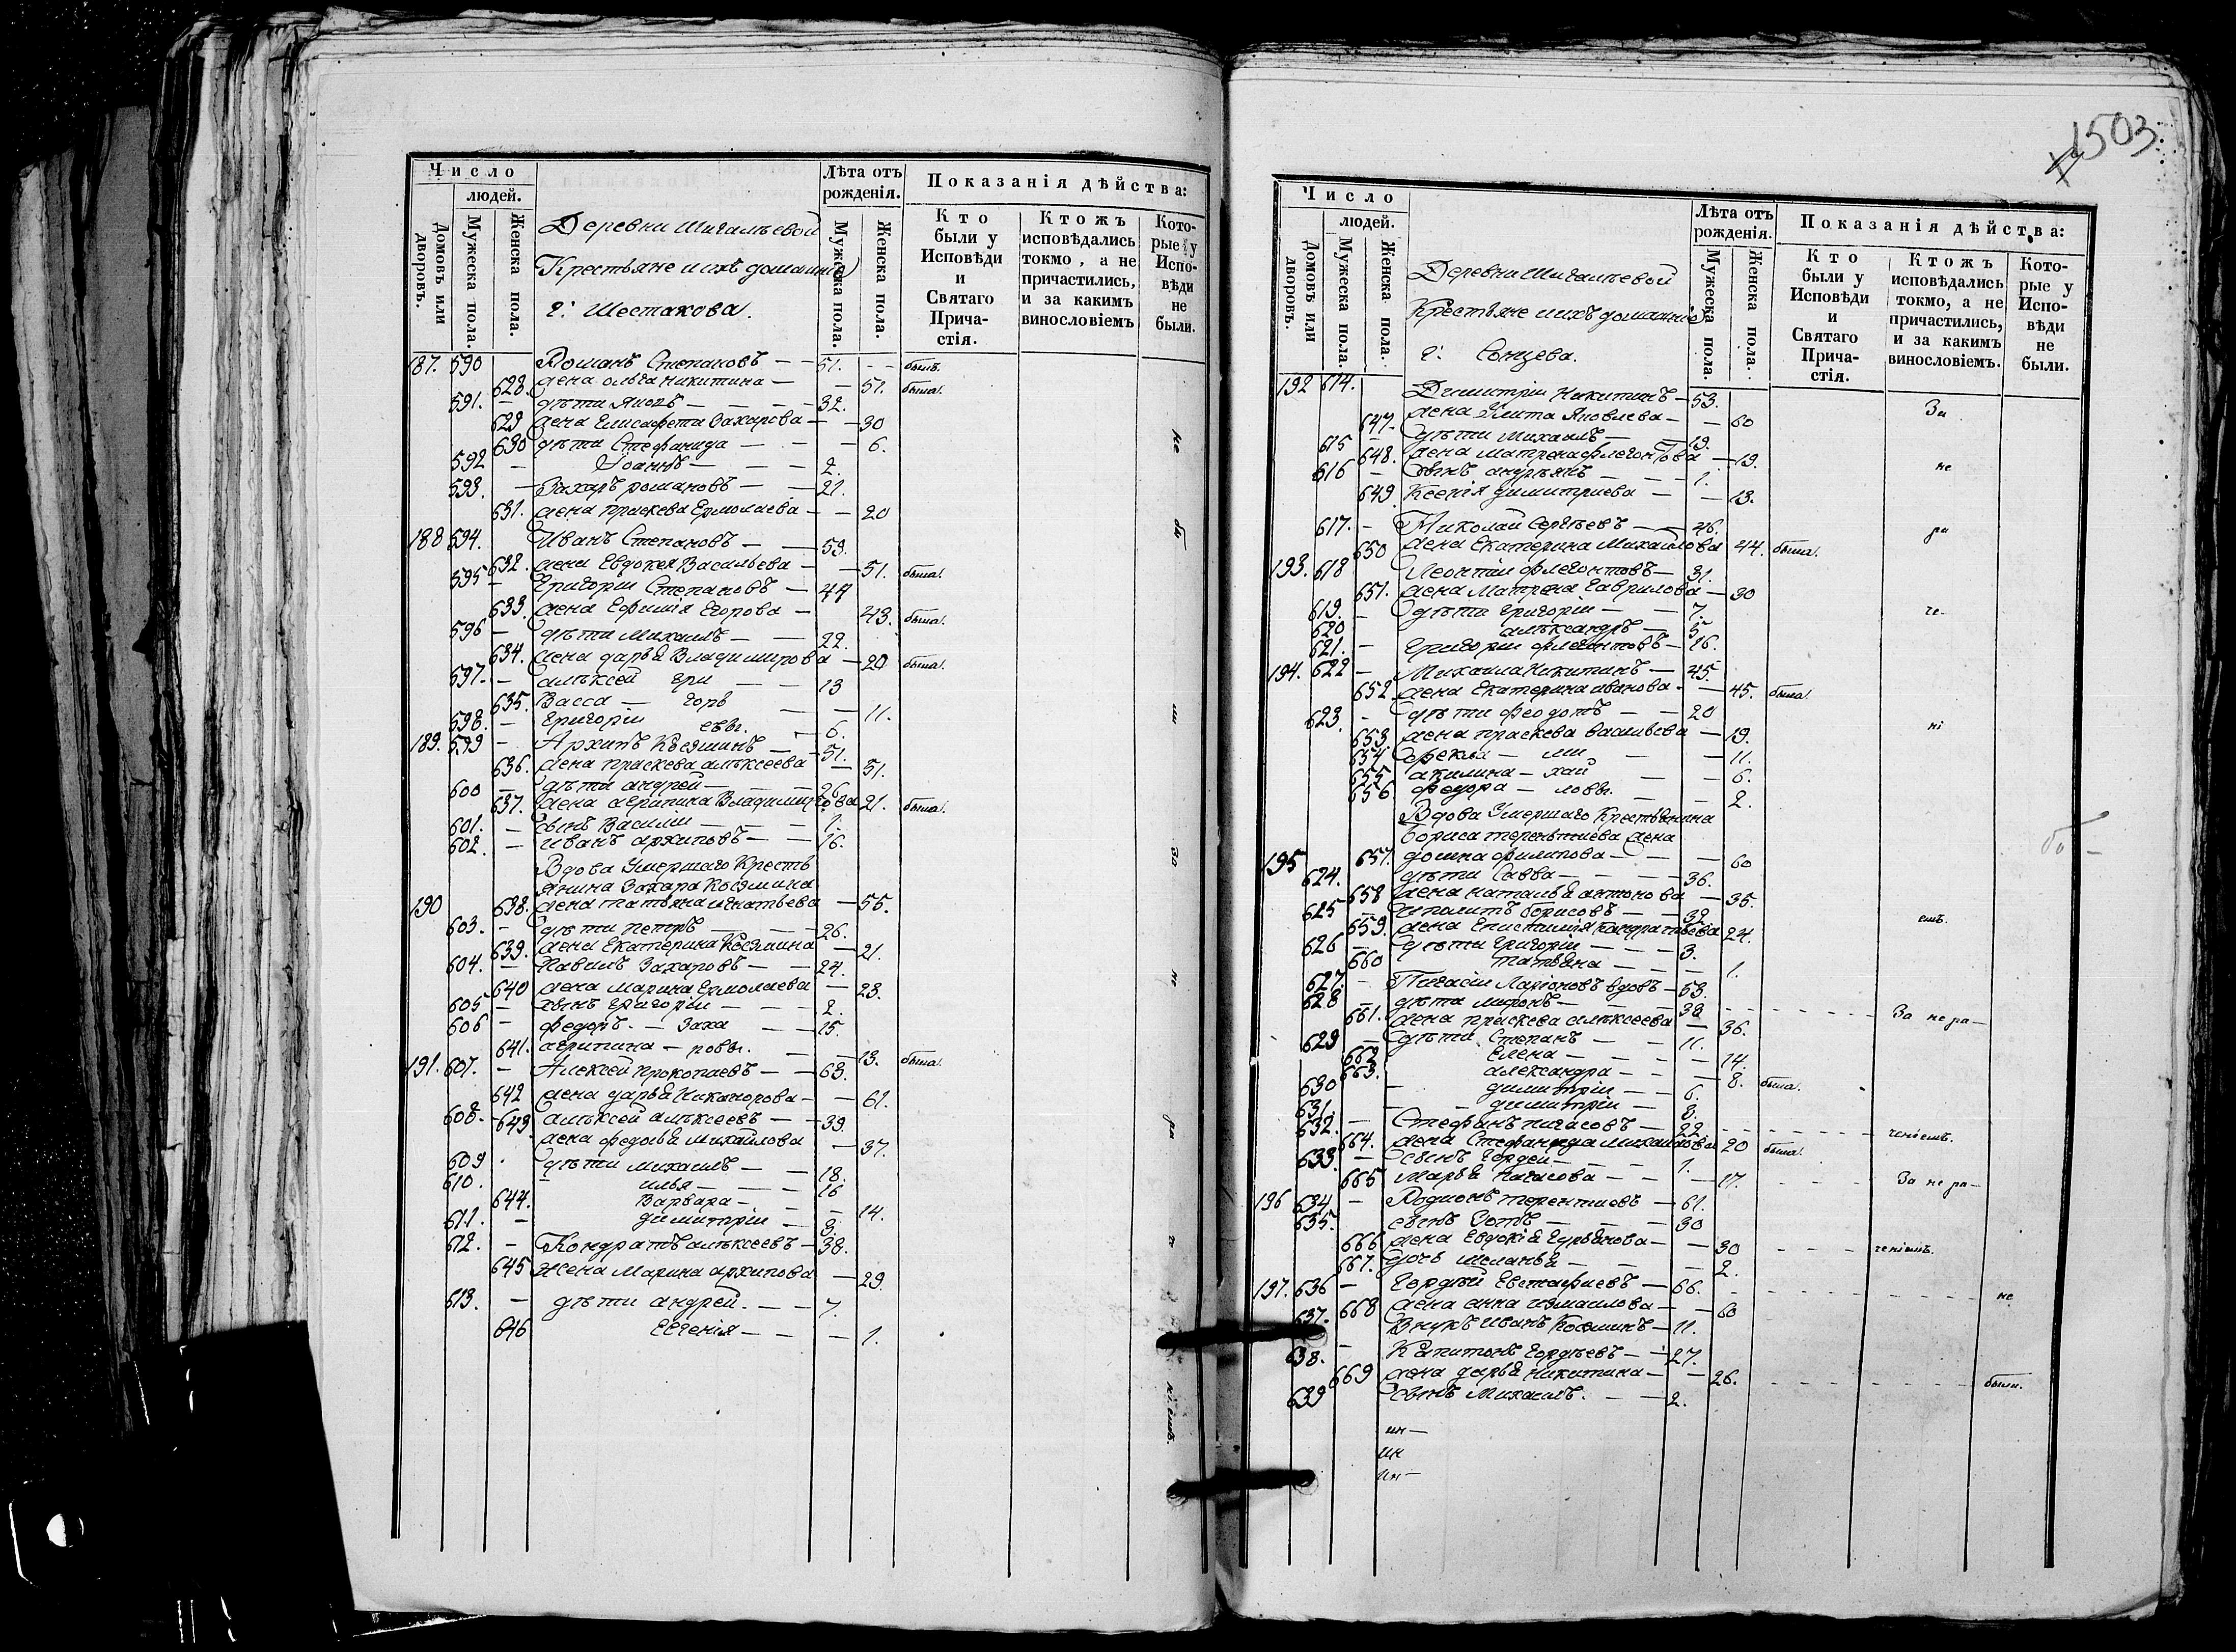 Число
людей.
Домовъ или дворовъ.
Мужеска пола.
Женска пола.
Деревни Шигалѣевой
Крестьяне и ихъ домашніе
г: Шестакова.
Лѣта отъ рожденія.
Мужеска пола.
Женска пола.
Показанія дѣйства:
Кто были у Исповѣди и Святаго Причастія.
Ктожъ исповѣдались токмо, а не причастились, и за какимъ винословіемъ
Которые у Исповѣди не были.
187. 590 Романъ Степановъ — 51. былъ.
628. жена Ольга Никитина — 51. была.
591. — дѣти Яковъ — 32.
629 жена Елисафета Захарова — 30
630 дѣти Стефанида — 6.
592 — Іоаннъ — 2.
593. — Захаръ Романовъ — 21.
631. жена Праскева Ермолаева — 20
188 594. Иванъ Степановъ — 53.
632. жена Евдокея Васильева — 51. была.
595 — Григоріи Степановъ — 44
633. жена Ефимія Егорова — 43. была.
596 — дѣти Михаилъ — 22.
634. жена Дарья Владимирова — 20 была.
597. — Алѣксей Гри — 13
635. Васса — горь — 11.
598. — Григоріи евы. — 6.
189. 599 — Архипъ Косминъ — 51.
636. жена Праскева Алѣксеева — 51.
600 — дѣти Андрей — 26
637. жена Агрипина Владимирова 21. была.
601. — сынъ Васили — 1.
602. — Иванъ Архиповъ — 16.
Вдова Умершаго Кресть
янина Захара Косямина
190 638. жена Татьяна Игнатьева — 55.
603. — дѣти Петръ — 26.
639. жена Екатерина Косямина — 21.
604. — Павилъ Захаровъ — 24.
640 жена Марина Ермолаева — 23.
605 — сынъ Григоріи — 2.
606 — Федоръ — Заха — 15.
641. Агрипина — ровы. — 13. была.
191. 607. — Алексей Прокопаевъ — 63.
642 жена Дарья Никанорова — 61.
608. — 643. Алѣксей Алѣксеевъ — 39.
жена Федосья Михайлова — 37.
609 . дѣти Михаилъ — 18.
610. — Илья — 16
644. Варвара — 14.
611. — Димитріи — 3.
612. — Кондратъ Алѣксеевъ — 38.
645 Жена Марина Архипова — 29
613. — дѣти Андрей. — 7.
646 Евгенія — 1.
не
бы
ли
за
не
ра
ніемъ.
1503
Число
людей.
Домовъ или дворовъ.
Мужеска пола.
Женска пола.
Деревни Шигалѣевой
Крестьяне и ихъ домашніе
г: Сонцева.
Лѣта отъ рожденія.
Мужеска пола.
Женска пола.
Показанія дѣйства:
Кто были у Исповѣди и Святаго Причастія.
Ктожъ исповѣдались токмо, а не причастились, и за какимъ винословіемъ.
Которые у Исповѣди не были.
192 614. Димитріи Никитинъ — 53. За
647. жена Улита Яковлева — 60
615 — дѣти Михаилъ — 19.
648. жена Матрена Флегонтова — 19. не
616 — сынъ Андрѣянъ — 1.
649 Ксенія Димитриева — 13.
617. — Николай Сергѣевъ — 46. ра
650 жена Екатерина Михайлова 44. была.
193. 618 Леонтіи Флегонтовъ — 31.
651. жена Матрена Гаврилова — 30
619. — дѣти Григоріи — 7. че-
620 Алѣксандръ — 5
621. — Григоріи Флегонтовъ — 16.
194. 622 — Михаила Никитинъ — 45.
652 жена Екатерина Иванова — 45. была.
623 — дѣти Феодотъ — 20
653 жена Праскева Васильева — 19. ні
654 Фекла — ми — 11.
655 Акилина — хай — 6.
656 Федора — ловы. — 2.
Вдова Умершаго Крестьянина
Бориса Терентиева жена
195 657. Домна Филипова — 60
624. дѣти Савва — 36.
658 жена Наталья Антонова — 35.
625 — Иполитъ Борисовъ — 32 емъ.
659. жена Епистимія Кандратьева 24.
626 — дѣти Григоріи — 3.
660 Татьяна — 1.
627. — Пигасіи Ларіоновъ вдовъ — 53.
628 — дѣти Миронъ — 38
661. жена Праскева Алѣксеева — 36. За нера-
629 — дѣти Степанъ — 11.
662 Елена — 14.
663. Александра — 8. была.
630 — Димитріи — 6.
631. — Димитріи — 3.
632. — Стефанъ Пигасовъ — 22
664. жена Стефанида Михайлова 20 была. ченіемъ.
633. — сынъ Гордей — 1.
665 Марья Пигасова — 17. За нера-
196 634 — Родионъ Терентиевъ — 61.
635. сынъ Зотъ — 30
666 жена Евдокія Гурьянова — 30 ченіемъ.
667. дочь Меланья — 2.
197. 636 — Гордѣй Евстафиевъ — 66.
668 жена Анна Измаилова — 60 не
637. Внукъ Иванъ Косминъ — 11.
638. — Капитонъ Гордѣевъ — 27.
669 жена Дарья Никитина — 26. были.
639 сынъ Михаилъ. — 2.